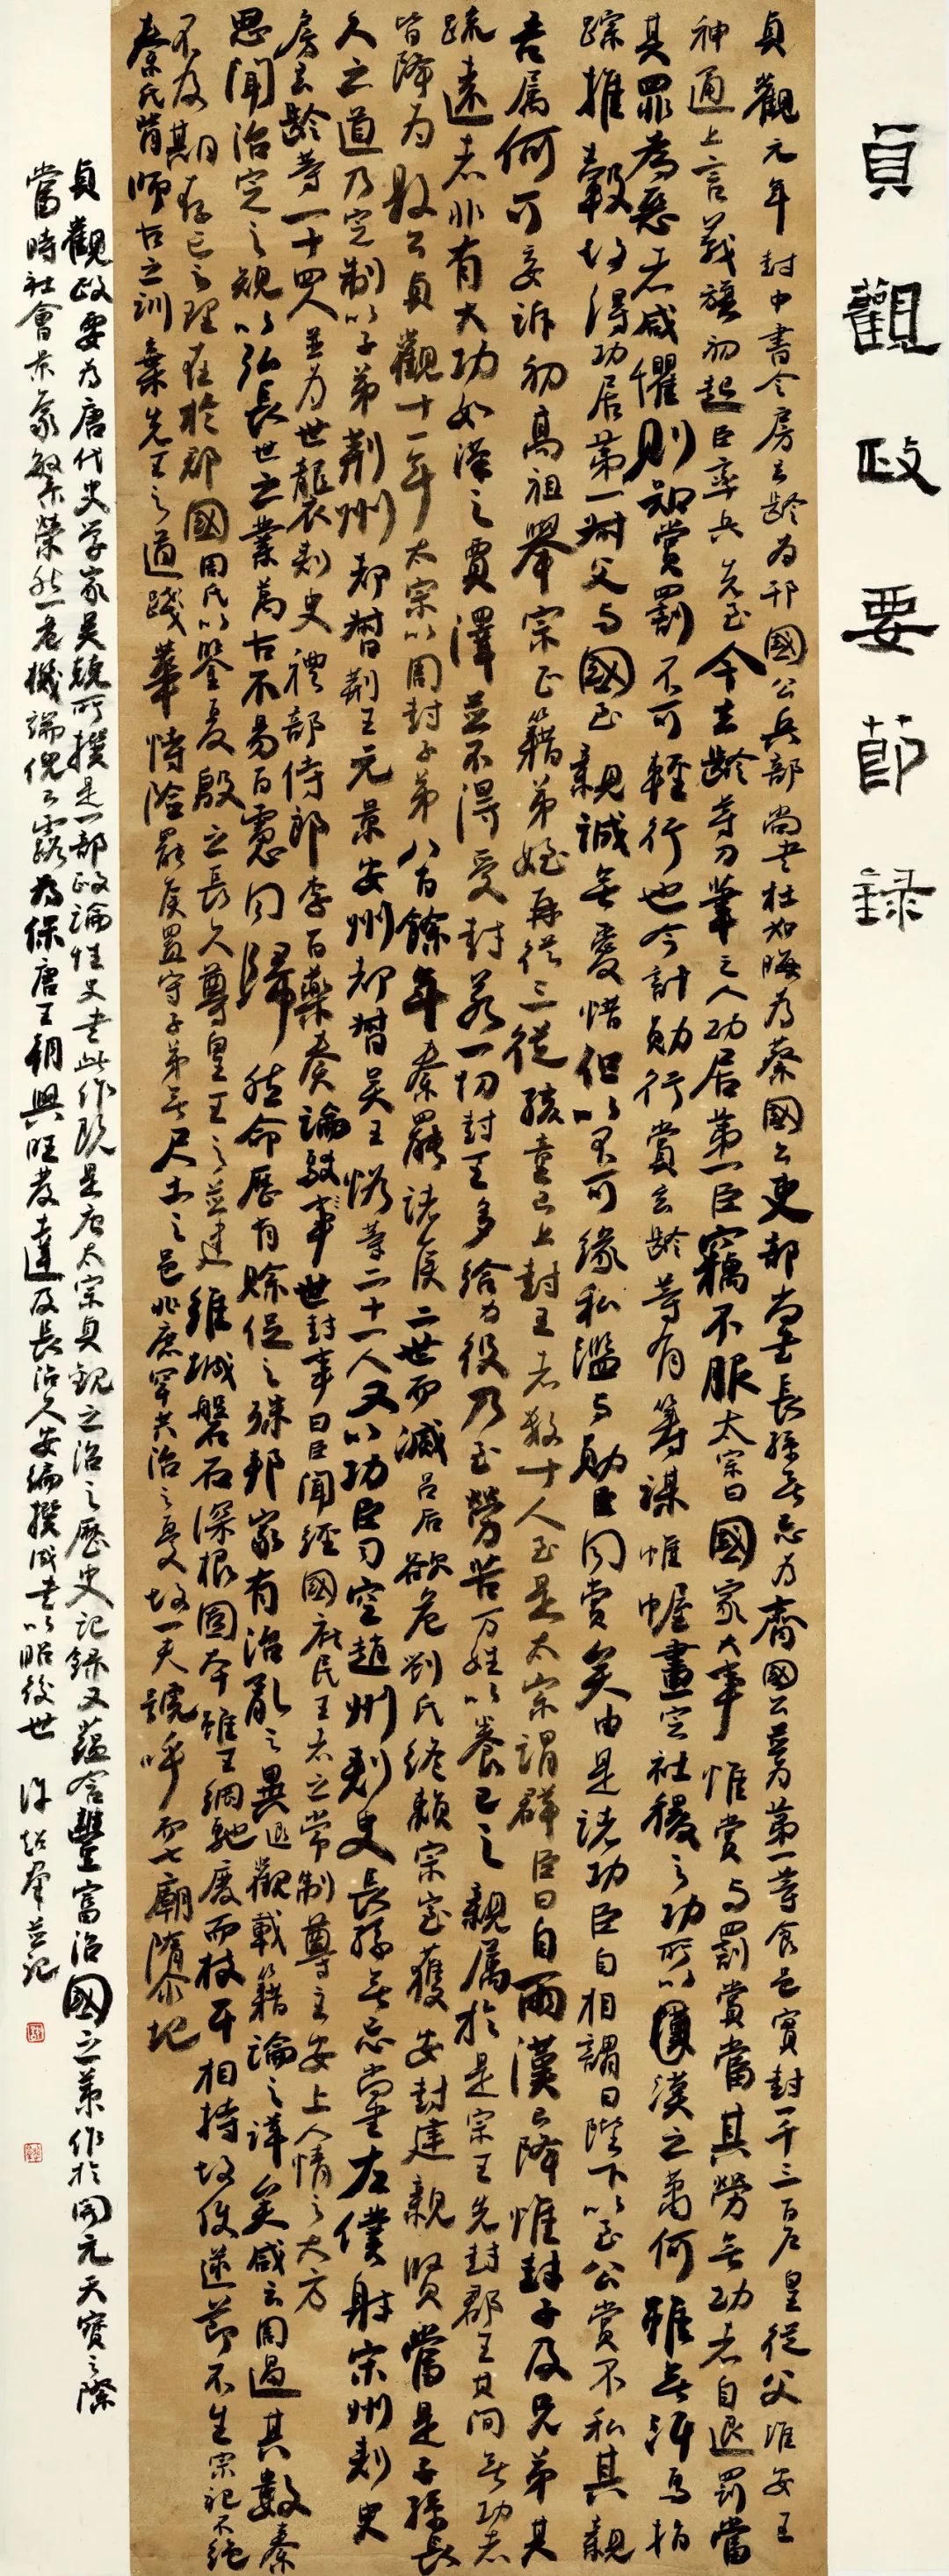 貞觀政要節録
貞觀元年封中書令房玄齡為邗國公兵部尚書杜如晦為蔡國公吏部尚書長孫無忌為齊國公並為第一等食邑實封一千三百戶皇從父淮安王
神通上言義旗初起臣率兵先至今玄齡等刀筆之人功居第一臣竊不服太宗曰國家大事惟賞與罰賞當其勞無功者自退罰當
其罪為惡者咸懼則知賞罰不可輕行也今計勛行賞玄齡等有籌謀帷幄畫定社稷之功所以漢之蕭何雖無汗馬指
蹤推轂故得功居第一叔父與國至親誠無愛惜但以不可緣私濫與勛臣同賞矣由是諸功臣自相謂曰陛下以至公賞不私其親
吾屬何可妄訴初高祖舉宗正籍弟姪再從三從孩童已上封王者數十人至是太宗謂群臣曰自兩漢已降惟封子及兄弟其
疏遠者非有大功如漢之賈澤並不得受封若一切封王多給力役乃至勞苦萬姓以養己之親屬於是宗王先封郡王其間無功者
皆降為縣公貞觀十一年太宗以周封子弟八百餘年秦罷諸侯二世而滅呂后欲危劉氏終賴宗室獲安封建親賢當是子孫長
久之道乃定制以子弟荊州都督荊王元景安州都督吳王恪等二十一人又以功臣司空趙州刺史長孫無忌尚書左僕射宋州刺史
房玄齡等一十四人並為世襲刺史禮部侍郎李百藥奏論駁世封事曰臣聞經國庇民王者之常制尊主安上人情之大方
思聞治定之規以弘長世之業萬古不易百慮同歸然命歷有賒促之殊邦家有治亂之異遐觀載籍論之詳矣咸云周過其數秦
不及期存亡之理在於郡國周氏以鑒夏殷之長久尊皇王之並建維城磐石深根固本雖王綱弛廢而枝干相持故使逆節不生宗祀不絕
秦氏背師古之訓棄先王之道踐華恃險罷侯置守子弟無尺土之邑兆庶罕共治之憂故一夫號呼而七廟隳圮
貞觀政要為唐代史學家吳兢所撰是一部政論性史書此作既是唐太宗貞觀之治之歷史記錄又蘊含豐富治國之策作於開元天寶之際
當時社會景象繁榮然危機端倪已露為保唐王朝興旺發達及長治久安編撰成書以昭後世 許超群並記